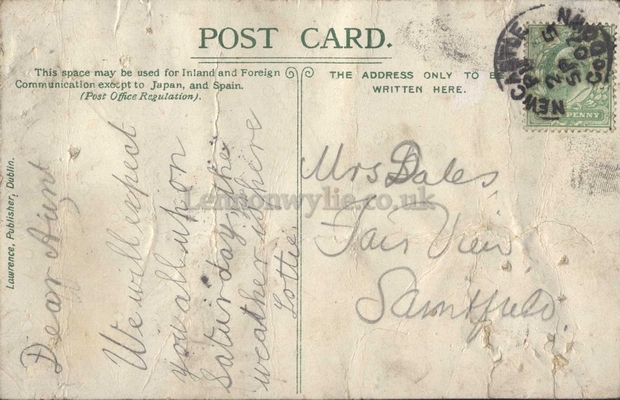 POST CARD.
This space may be used for Inland and Foreign
Communication except to Japan, and Spain.
(Post Office Regulation).
THE ADDRESS ONLY TO BE
WRITTEN HERE.
Lawrence, Publisher, Dublin.
Dear Aunt
We will expect
you all up on
Saturday, the
weather
Lottie
Mrs Dales
Fair View
Saintfield.
NEWCASTLE
CO. DOWN
PENNY
Lennonwylie.co.uk